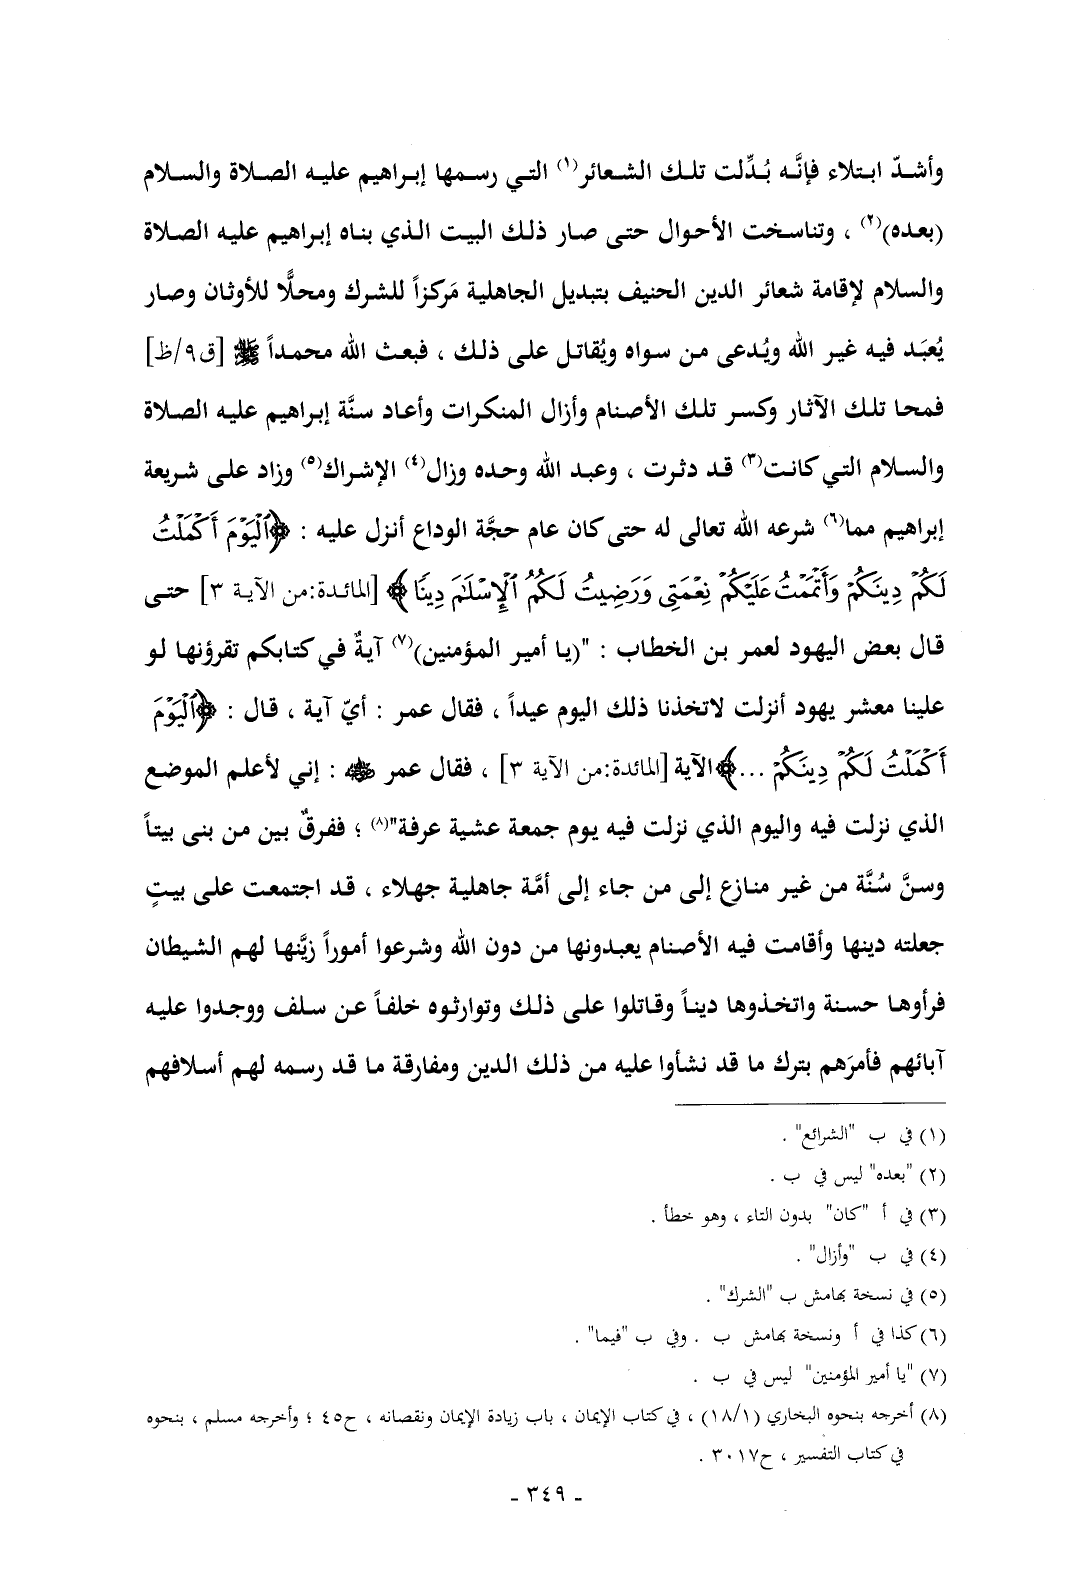 وأشدّ ابتلاء فإنَّه بُدِّلت تلك الشعائر(١) التي رسمها إبراهيم عليه الصلاة والسلام
(بعده)(٢) ، وتناسخت الأحوال حتى صار ذلك البيت الذي بناه إبراهيم عليه الصلاة
والسلام لإقامة شعائر الدين الحنيف بتبديل الجاهلية مَركزاً للشرك ومحلًّا للأوثان وصار
يُعبَد فيه غير الله ويُدعى من سواه ويُقاتل على ذلك ، فبعث الله محمداً ﷺ [ق٩/ظ]
فمحا تلك الآثار وكسر تلك الأصنام وأزال المنكرات وأعاد سنَّة إبراهيم عليه الصلاة
والسلام التي كانت(٣) قد دثرت ، وعبد الله وحده وزال(٤) الإشراك(٥) وزاد على شريعة
إبراهيم مما(٦) شرعه الله تعالى له حتى كان عام حجَّة الوداع أنزل عليه : ﴿ٱلْيَوْمَ أَكْمَلْتُ
لَكُمْ دِينَكُمْ وَأَتْمَمْتُ عَلَيْكُمْ نِعْمَتِى وَرَضِيتُ لَكُمُ ٱلْإِسْلَٰمَ دِينًا﴾ [المائدة:من الآية ٣] حتى
قال بعض اليهود لعمر بن الخطاب : "(يا أمير المؤمنين)(٧) آيةٌ في كتابكم تقرؤنها لو
علينا معشر يهود أنزلت لاتخذنا ذلك اليوم عيداً ، فقال عمر : أيّ آية ، قال : ﴿ٱلْيَوْمَ
أَكْمَلْتُ لَكُمْ دِينَكُمْ ...﴾ الآية [المائدة:من الآية ٣] ، فقال عمر رضي الله عنه : إني لأعلم الموضع
الذي نزلت فيه واليوم الذي نزلت فيه يوم جمعة عشية عرفة"(٨) ؛ ففرقٌ بين من بنى بيتاً
وسنَّ سُنَّة من غير منازع إلى من جاء إلى أمَّة جاهلية جهلاء ، قد اجتمعت على بيتٍ
جعلته دينها وأقامت فيه الأصنام يعبدونها من دون الله وشرعوا أموراً زيَّنها لهم الشيطان
فرأوها حسنة واتخذوها ديناً وقاتلوا على ذلك وتوارثوه خلفاً عن سلف ووجدوا عليه
آبائهم فأمرَهم بترك ما قد نشأوا عليه من ذلك الدين ومفارقة ما قد رسمه لهم أسلافهم
(١) في ب "الشرائع" .
(٢) "بعده" ليس في ب .
(٣) في أ "كان" بدون التاء ، وهو خطأ .
(٤) في ب "وأزال" .
(٥) في نسخة بهامش ب "الشرك" .
(٦) كذا في أ ونسخة بهامش ب . وفي ب "فيما" .
(٧) "يا أمير المؤمنين" ليس في ب .
(٨) أخرجه بنحوه البخاري (١٨/١) ، في كتاب الإيمان ، باب زيادة الإيمان ونقصانه ، ح٤٥ ؛ وأخرجه مسلم ، بنحوه
في كتاب التفسير ، ح٣٠١٧ .
- ٣٤٩ -